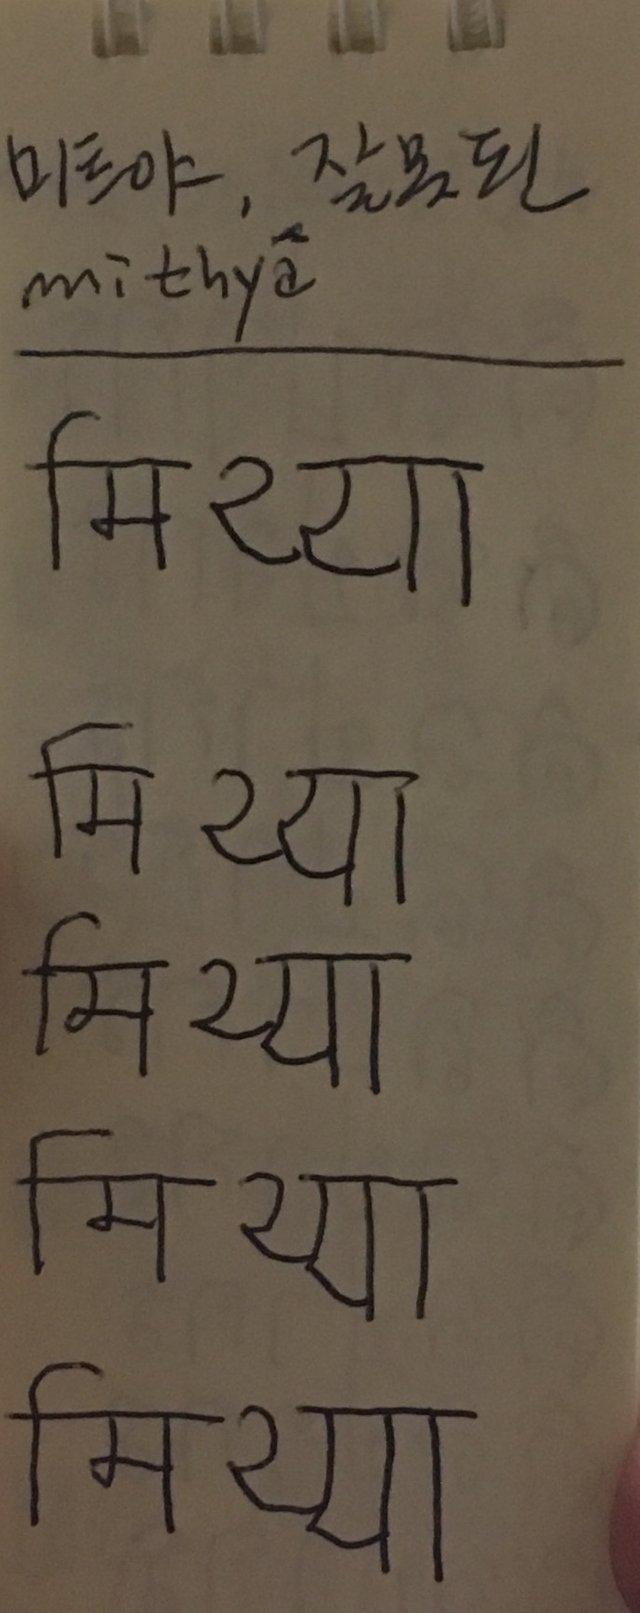 미트야, 잘못된
mithyā
मिथ्या
मिथ्या
मिथ्या
मिथ्या
मिथ्या